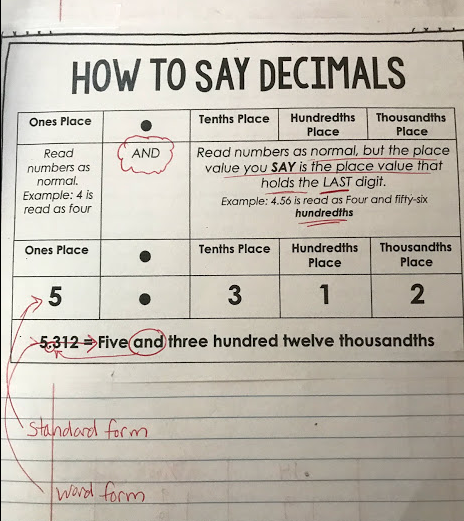 HOW TO SAY DECIMALS
Ones Place
•
Tenths Place
Hundredths
Place
Thousandths
Place
Read
numbers as
normal.
Example: 4 is
read as four
AND
Read numbers as normal, but the place
value you SAY is the place value that
holds the LAST digit.
Example: 4.56 is read as Four and fifty-six
hundredths
Ones Place
•
Tenths Place
Hundredths
Place
Thousandths
Place
5 • 3 1 2
5.312 = Five and three hundred twelve thousandths
Standard form
word form